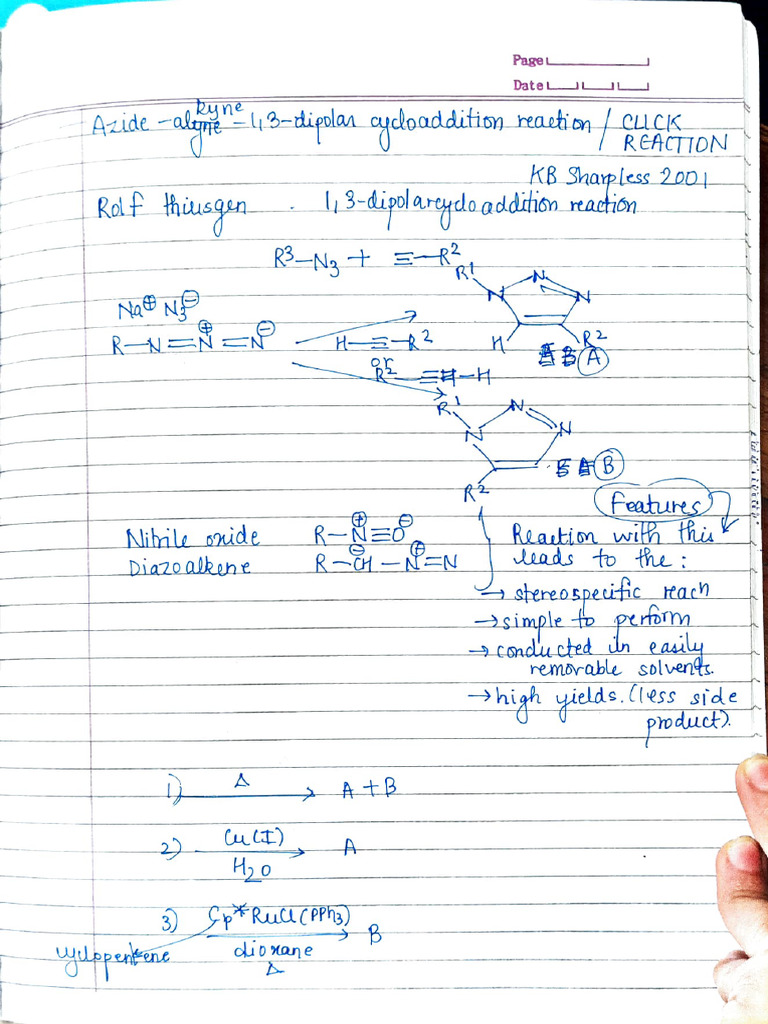 Page
Date
kyne
Azide -alyne -1,3-dipolar cycloaddition reaction / CLICK
REACTION
KB Sharpless 2001
Rolf thiusgen . 1,3-dipolarcycloaddition reaction
R³-N₃ + ≡-R²
R¹
N N N
Na⊕ N₃⊖
R-N=N⊕=N⊖
H-≡-R²
H R²
A
or
R² ≡-H
R¹
N N N
B
R²
Features
Nitrile oxide R-N⊕≡O⊖
Diazoalkene R-CH⊖-N⊕=N
Reaction with this
leads to the:
→ stereospecific reach
→ simple to perform
→ conducted in easily
removable solvents.
→ high yields. (less side
product).
1) Δ → A + B
2) Cu(I) → A
H₂O
3) Cp*RuCl(PPh₃) → B
cyclopentene dioxane
Δ